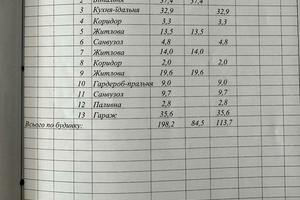 2 37,4 37,4
3 Кухня-їдальня 32,9 32,9
4 Коридор 3,3 3,3
5 Житлова 13,5 13,5
6 Санвузол 4,8 4,8
7 Житлова 14,0 14,0
8 Коридор 2,0 2,0
9 Житлова 19,6 19,6
10 Гардероб-пральня 9,0 9,0
11 Санвузол 9,7 9,7
12 Паливна 2,8 2,8
13 Гараж 35,6 35,6
Всього по будинку: 198,2 84,5 113,7